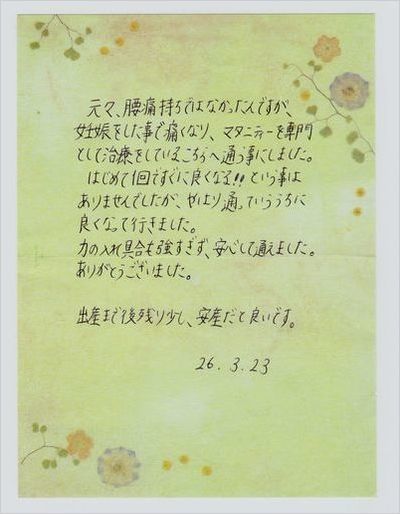 元々、腰痛持ちではなかったんですが、
妊娠をした事で痛くなり、マタニティーを専門
として治療をしているこちらへ通う事にしました。
はじめて1回ですぐに良くなる!!という事は
ありませんでしたが、やはり通っていううちに
良くなって行きました。
力の入れ具合も強すぎず、安心して通えました。
ありがとうございました。
出産まで後残り少し、安産だと良いです。
26.3.23